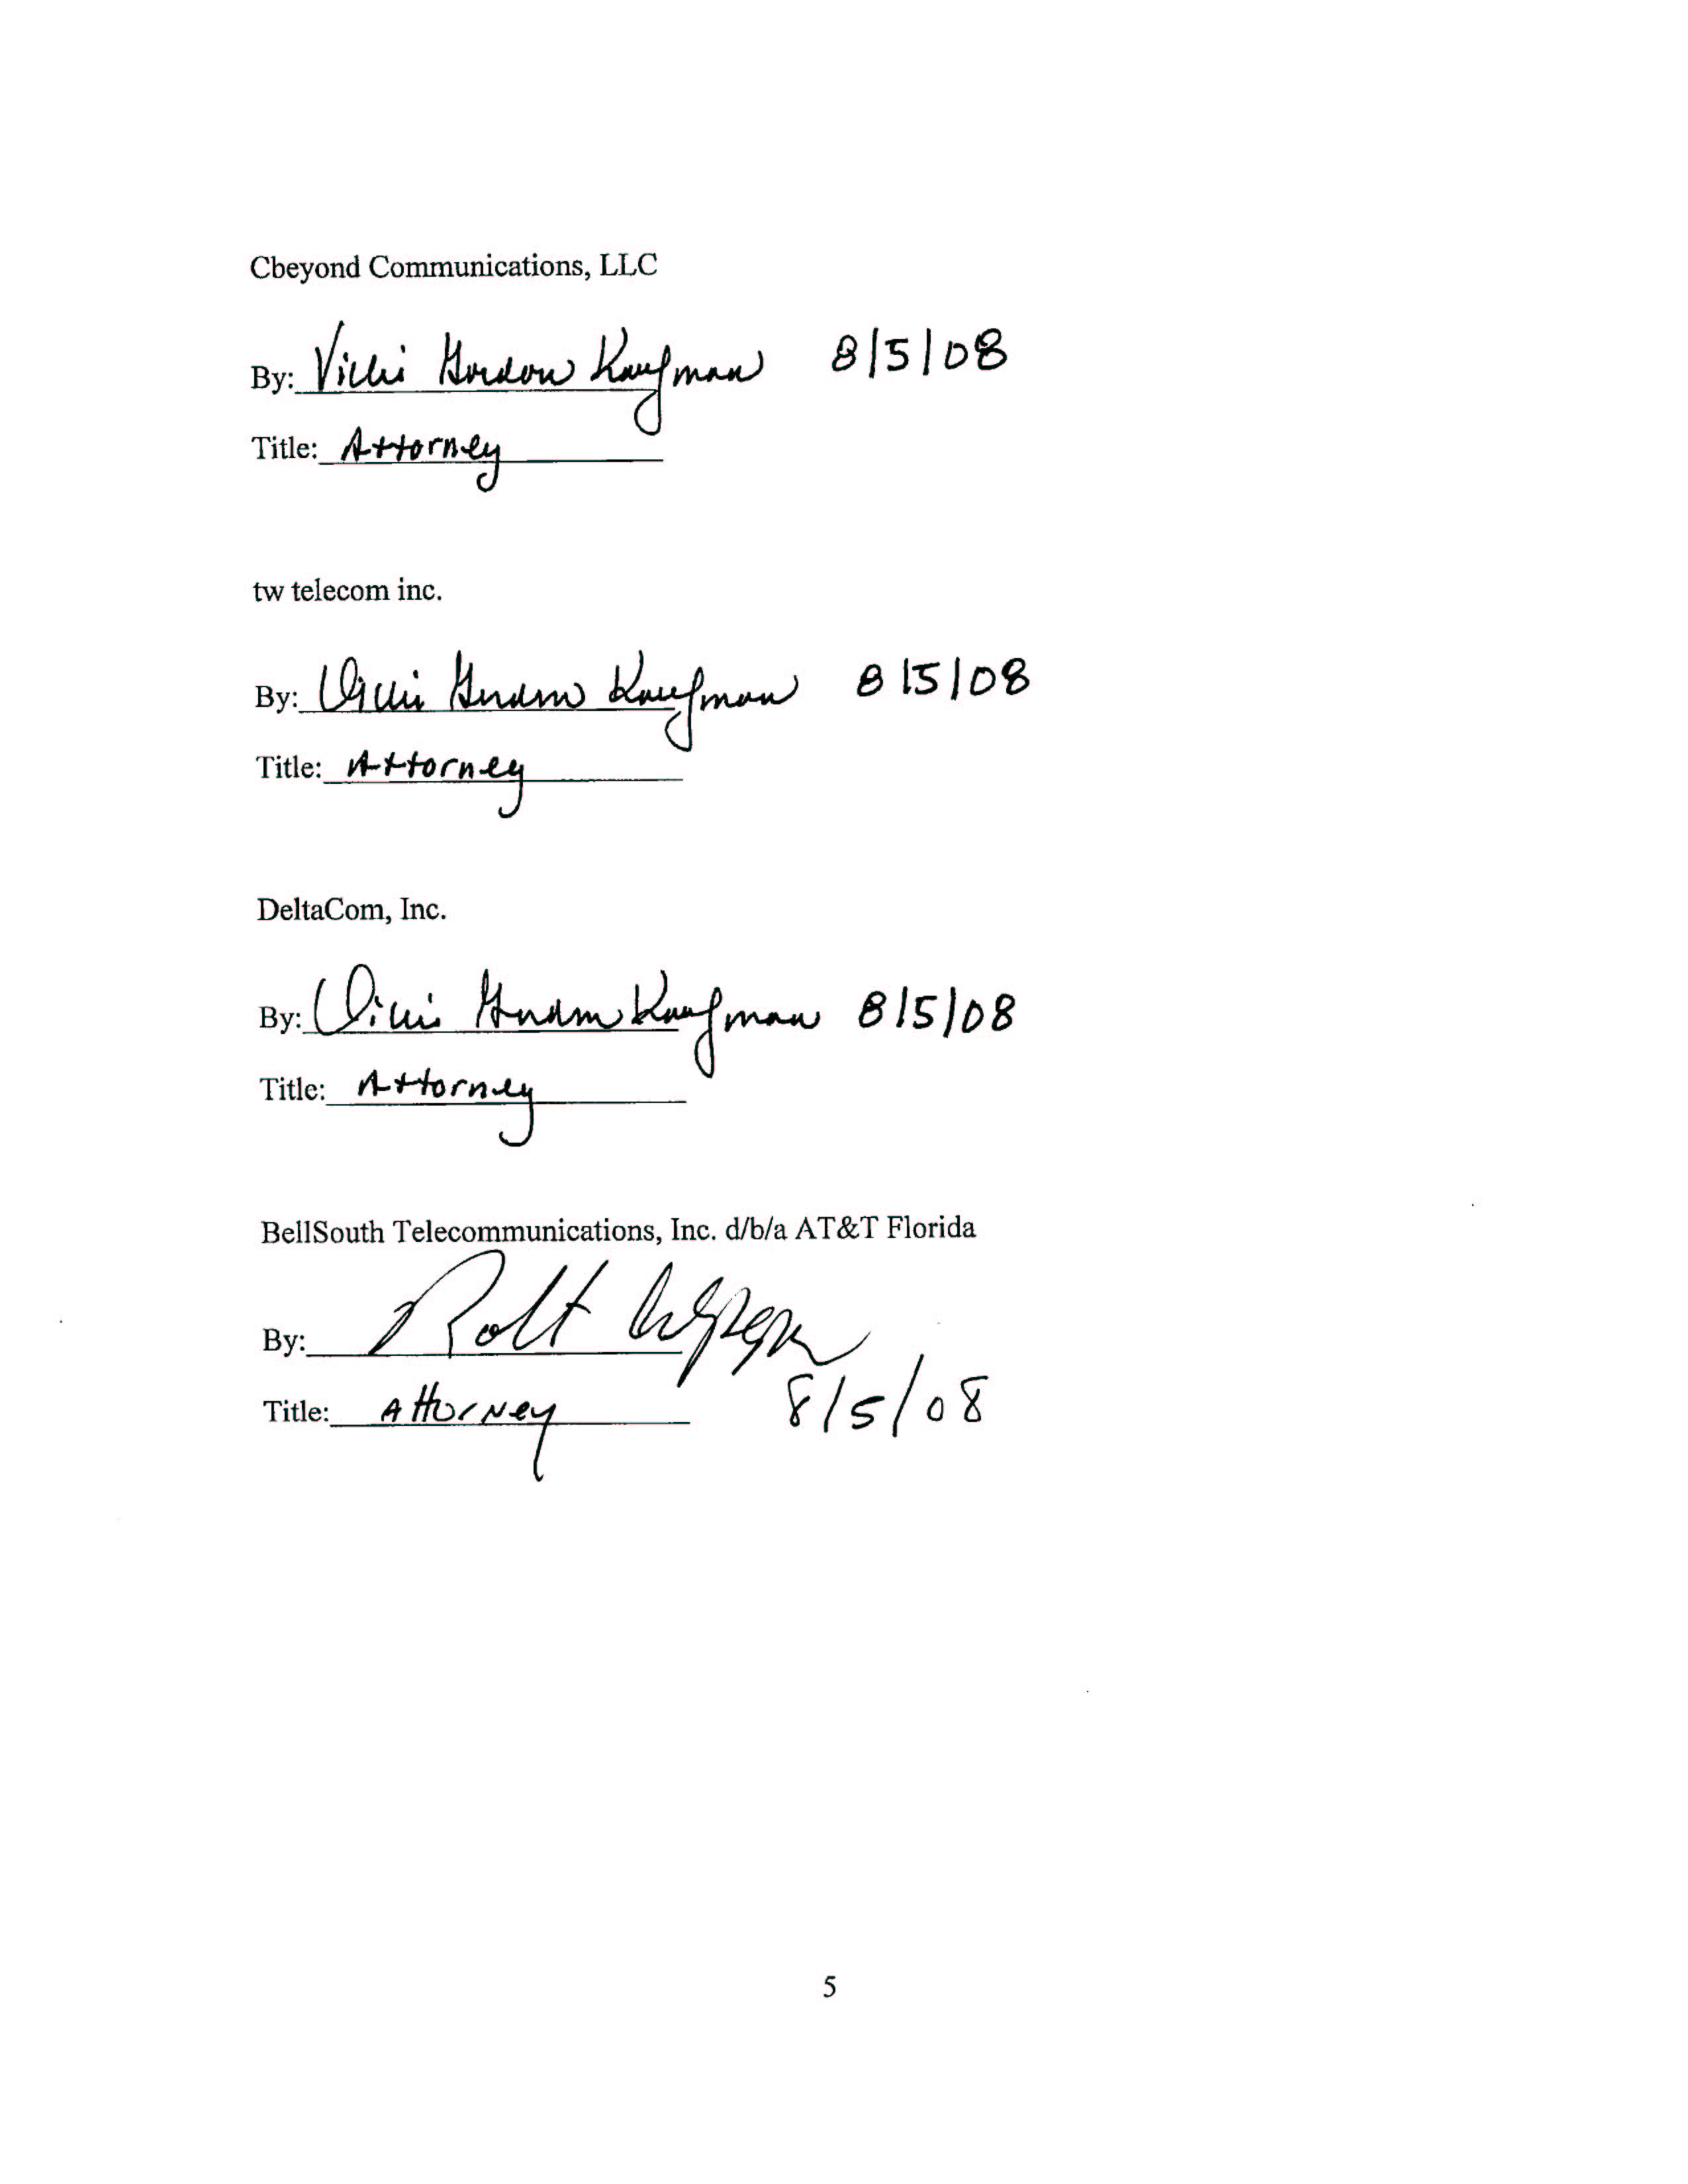 Cbeyond Communications, LLC
By: Vicki Gordon Kaufman 8/5/08
Title: Attorney
tw telecom inc.
By: Vicki Gordon Kaufman 8/5/08
Title: Attorney
DeltaCom, Inc.
By: Vicki Gordon Kaufman 8/5/08
Title: Attorney
BellSouth Telecommunications, Inc. d/b/a AT&T Florida
By:
Title: Attorney 8/5/08
5